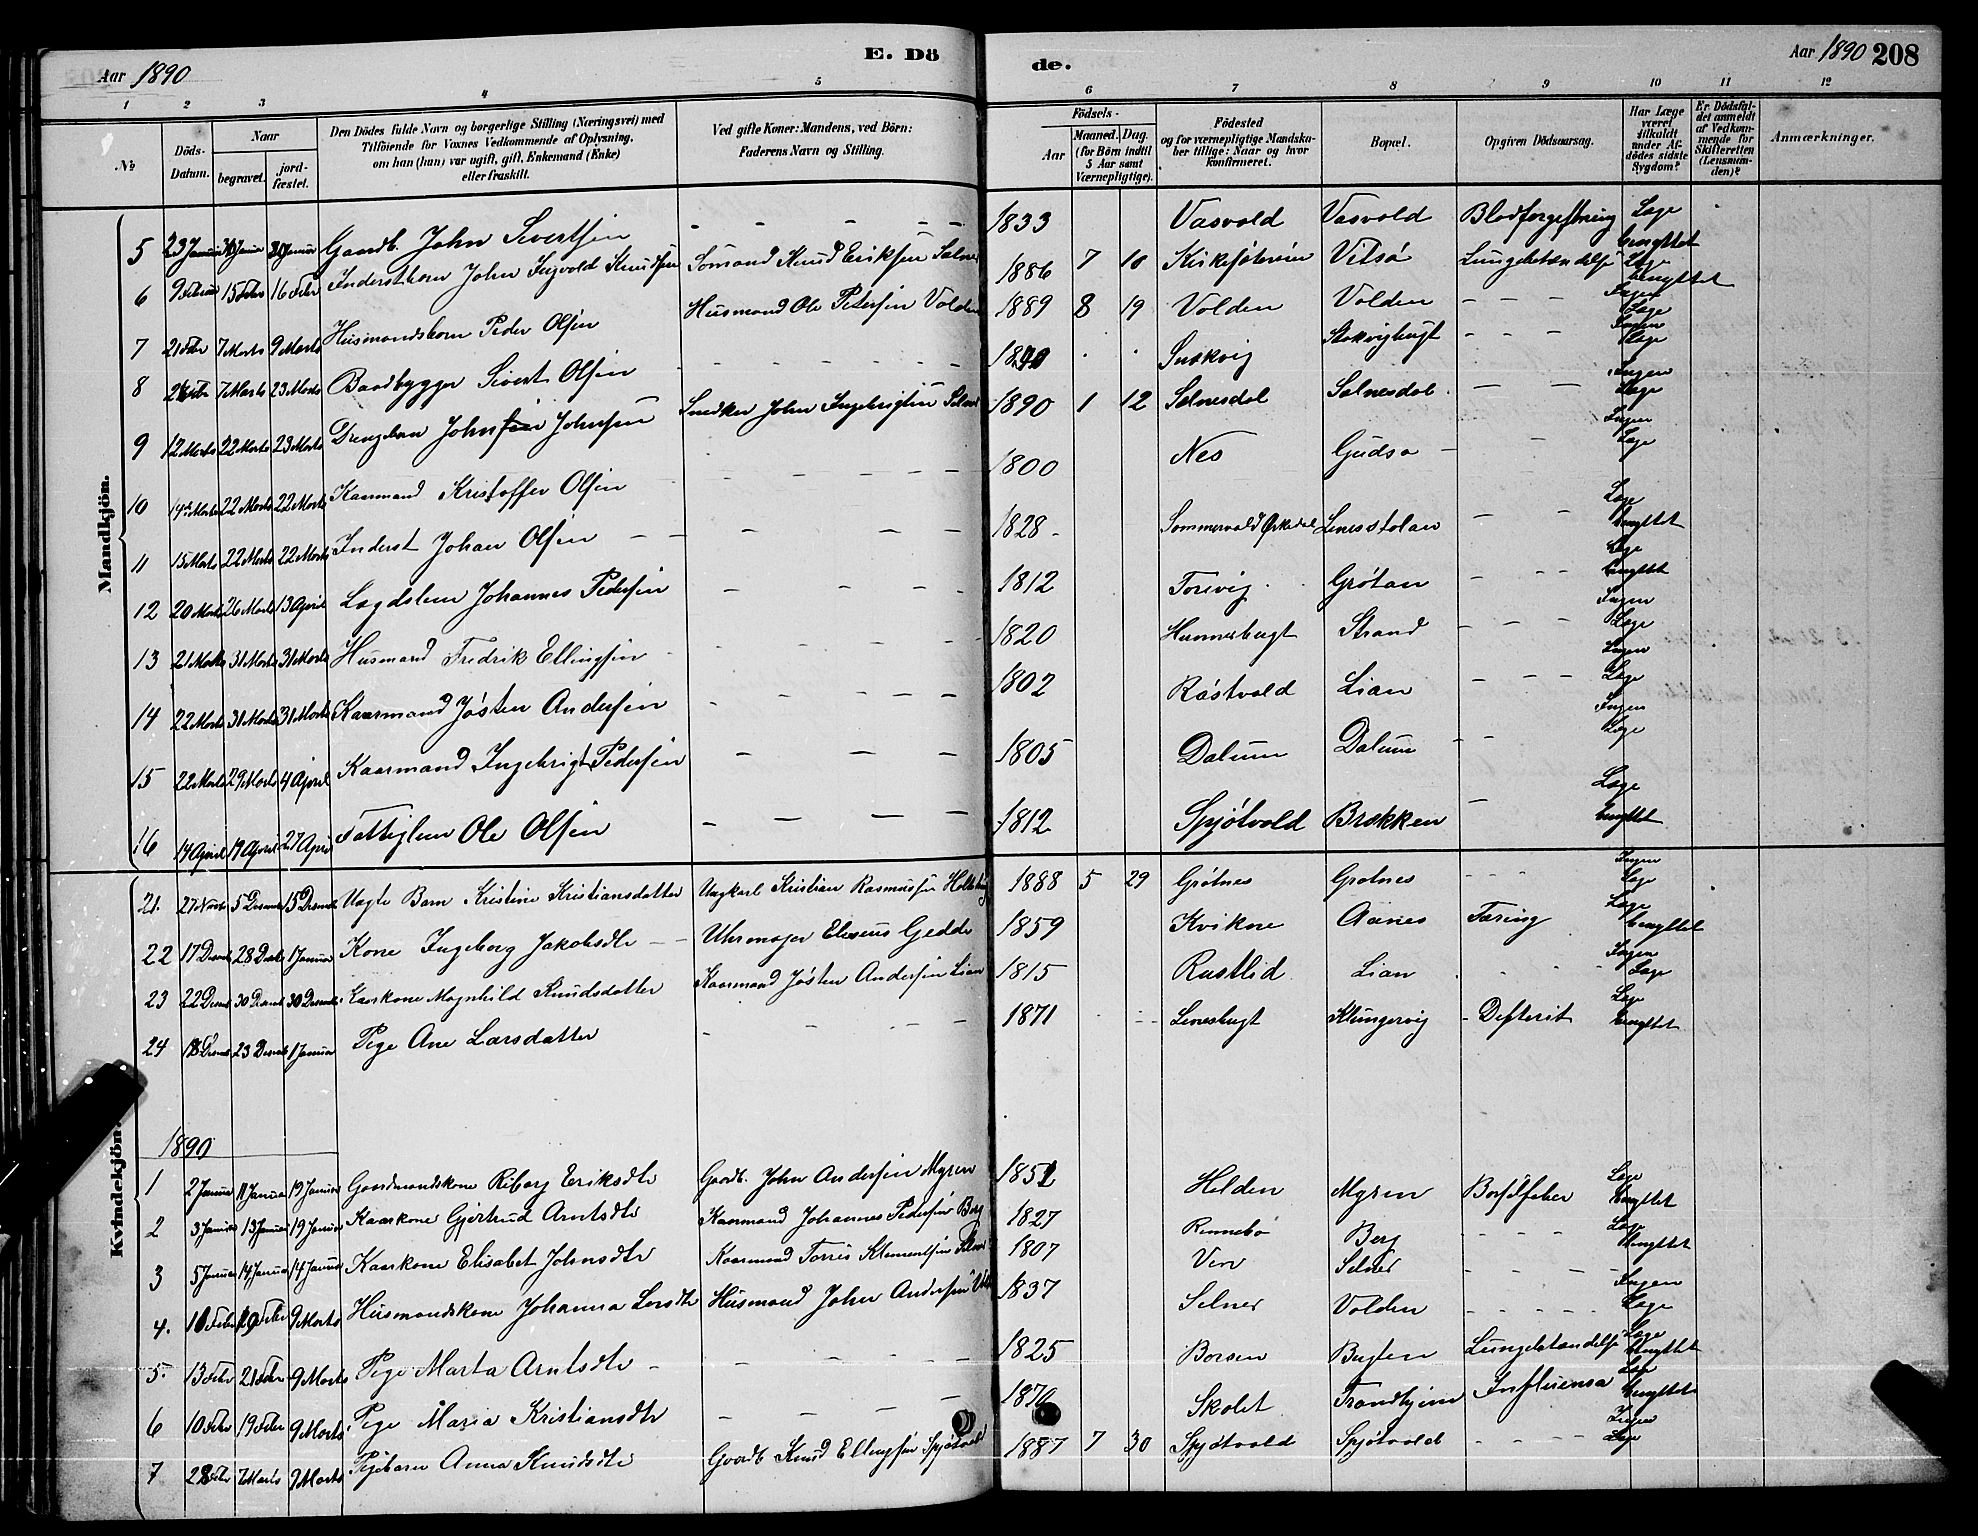 Aar 1890 E. Dö de. Aar 1890 208
1 2 3 4 5 6 7 8 9 10 11 12
№ Döds-Datum. Naar begravet. jordfæstet. Den Dödes fulde Navn og borgerlige Stilling (Næringsvei) med Tilföiende for Voxnes Vedkommende af Oplysning, om han (hun) var ugift, gift, Enkemand (Enke) eller fraskilt. Ved gifte Koner: Mandens, ved Börn: Faderens Navn og Stilling. Födsels- Aar Maaned. Dag. (for Börn indtil 5 Aar samt Værnepligtige). Födested og for værnepligtige Mandskaber tillige: Naar og hvor konfirmeret. Bopæl. Opgiven Dödsaarsag. Har Læge været tilkaldt under Afdödes sidste Sygdom? Er Dödsfaldet anmeldt af Vedkommende for Skifteretten (Lensmanden)? Anmærkninger.
Mandkjön.
5 23 Januar Gaardb. John Sivertsen - - - - - 1833 Vasvold Vasvold Blodforgiftning Læge benyttet
6 9 Februar 15 Febr 16 Febr Inderstbarn John Ingvold Knudsen Sømand Knud Eriksen Selnes 1886 7 10 Vitsø Lungebetændelse Læge benyttet
7 21 Febr 7 Marts 9 Marts Husmandsbarn Peder Olsen Husmand Ole Petersen Volden 1889 8 19 Volden Volden - - - Ingen Læge
8 7 Marts 23 Marts Baadbygger Sivert Olsen - - - - - Ingen Læge
9 12 Marts 22 Marts 23 Marts Drengebarn John Johnsen Snedker John Ingebrigtsen 1890 1 12 Selnesdal Selnesdal - - Ingen Læge
10 14 Marts 22 Marts 22 Marts Kaarmand Kristoffer Olsen - - - - 1800 Nes - Ingen Læge
11 15 Marts 22 Marts 22 Marts Inderst Johan Olsen - - - - - 1828 - - Læge benyttet
12 20 Marts 26 Marts 13 April Lægdslem Johannes Pedersen - - - - 1812 Grøtan - - - Læge benyttet
13 21 Marts 31 Marts 31 Marts Husmand Fredrik Ellingsen - - - - 1820 Strand - - - - Ingen Læge
14 22 Marts 31 Marts 31 Marts Kaarmand Jösten Andersen - - - - - 1802 Lian - - - Ingen Læge
15 22 Marts 29 Marts 4 April Kaarmand Ingebrigt Pedersen - - - 1805 Dalum Dalum - - Ingen Læge
16 14 April 17 April 27 April Fattiglem Ole Olsen - - - - 1812 Spjøtvold Brækken - Læge benyttet
Kvindekjön.
21. 5 Decemb 15 Decemb Uægte Barn Kristine Kristiansdatter Ungkarl Kristian Rasmussen 1888 5 29 Grøtnes Grøtnes - - - Ingen Læge
22 17 Decemb 28 Decb 1 Januar Kone Ingeborg Jakobsdtr - - Uhrmager Eliseus Gedde 1859 Kvikne Aanes Tæring Læge benyttet
23 22 Decemb 30 Decemb 30 Decemb Kaarkone Magnhild Knudsdatter Kaarmand Jösten Andersen Lian 1815 Rustlid Lian - - - Ingen Læge
24 18 Decemb 23 Decemb 1 Januar Pige Ane Larsdatter - - - - 1871 Klungervig - Defterit Læge benyttet
1890
1 2 Januar 11 Januar 19 Januar Gaardmandskone Eriksdtr Gaardb. John Andersen Myren 1851 Helden Myren Læge benyttet
2 3 Januar 13 Januar 19 Januar Kaarkone Gjertrud Arntsdtr Kaarmand Johannes Pedersen Berg 1827 Rinnebø Berg - - - - Læge benyttet
3 5 Januar 14 Januar 14 Januar Kaarkone Elisabet Johnsdtr Kaarmand Torris Klementsen Selnes 1807 Ven Selnes - - - - Ingen Læge
4. 9 Marts Husmandskone Johanna Larsdtr Husmand John Andersen 1837 Selnes Volden - - - - - Læge
5. 13 Febr 21 Febr 9 Marts Pige Marta Arntsdtr - - - - - - 1825 Børsen Bugten Lungebetændelse Læge benyttet
6 10 Febr 19 Febr 9 Marts Pige Maria Kristiansdtr - - - - 1870 Skolet Trondhjem Influensa Læge benyttet
7 28 Febr 7 Marts 9 Marts Pigebarn Anna Knudsdtr Gaardb Knud Ellingsen Spjøtvold 1887 7 30 Spjøtvold Spjøtvold - - - - Ingen Læge